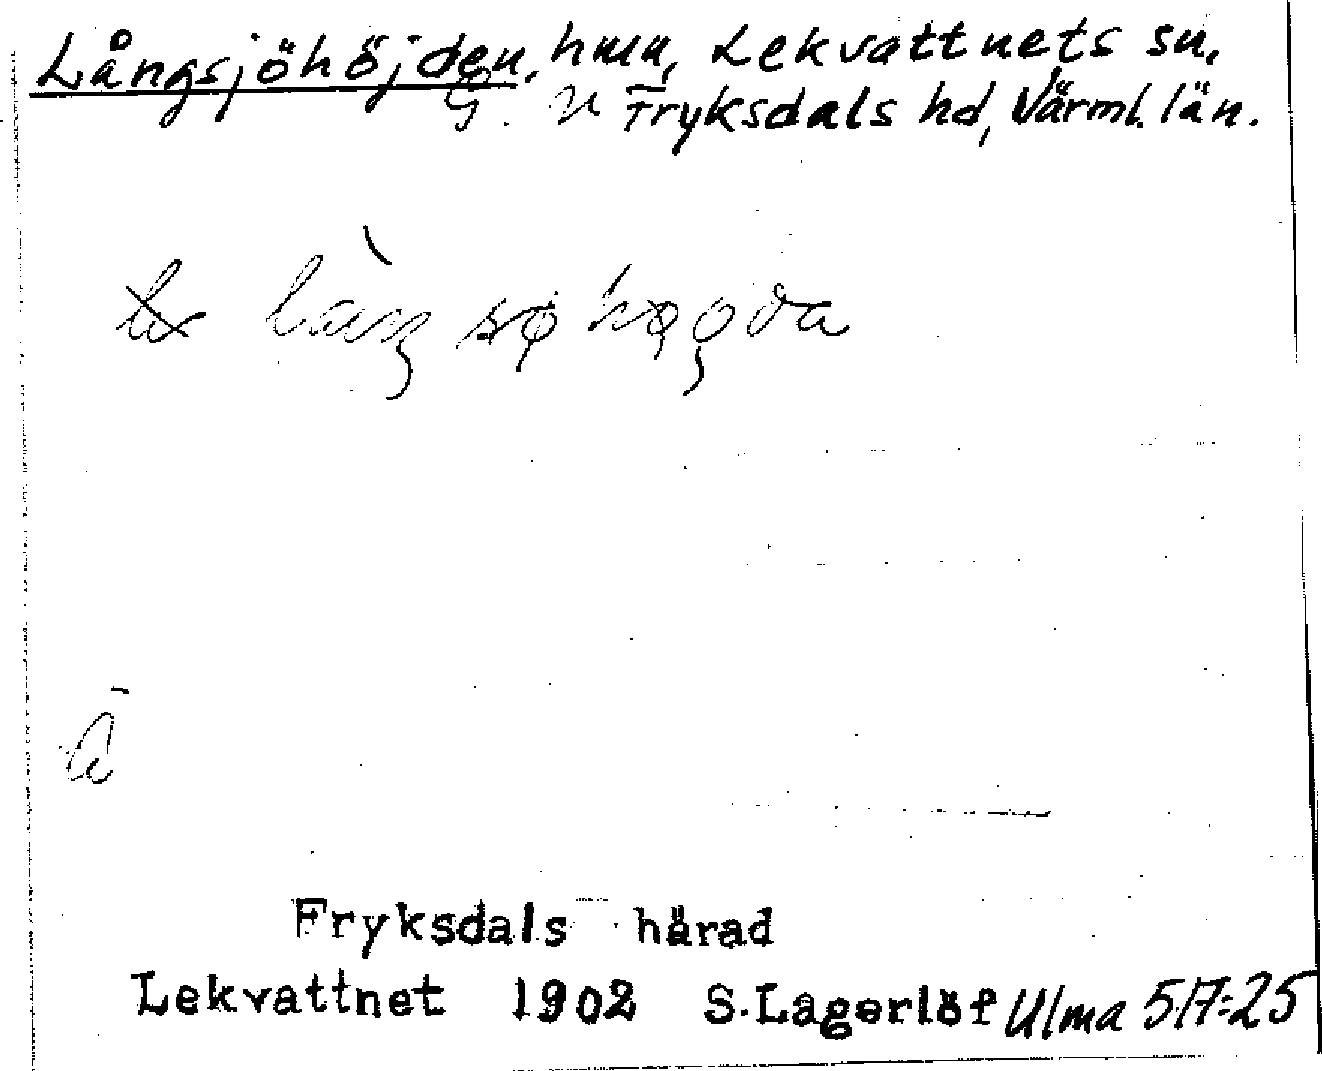 Långsjöhöjden, hmn, Lekvattnets sn,
G. N Fryksdals hd, Värml. län.
Fryksdals härad
Lekvattnet 1902 S. Lagerlöf Ulma 517:25